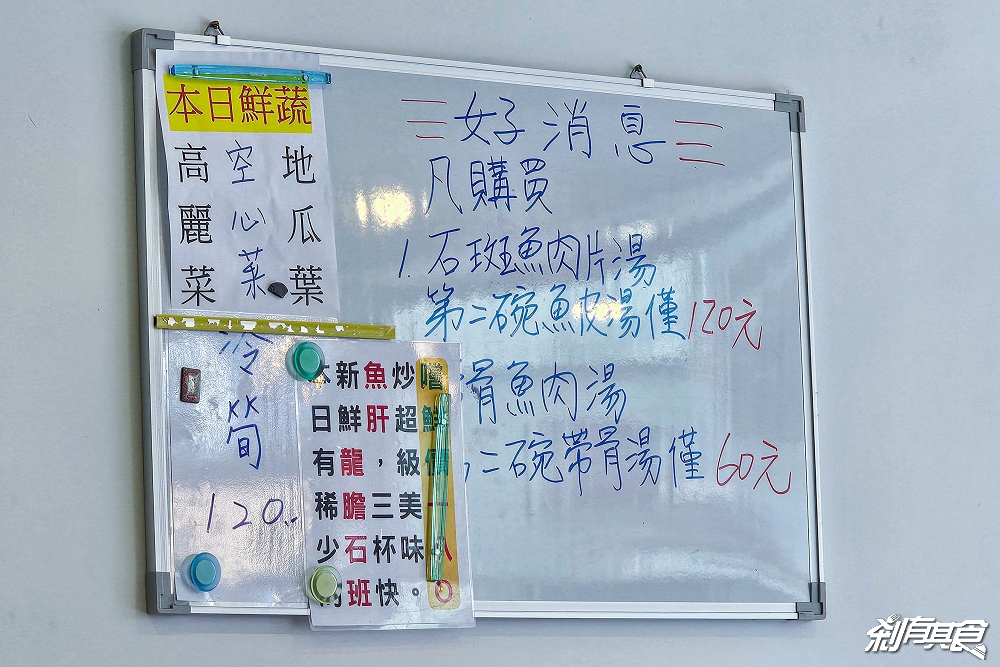 本日鮮蔬
高麗菜
空心菜
地瓜葉
冷筍
120..
本日有稀少的
新鮮龍膽石班
魚肝，三杯快
炒超級美味。
嚐鮮價一八○
好消息
凡購買
1. 石斑魚肉片湯
第二碗魚皮湯僅120元
骨魚肉湯
二碗帶骨湯僅60元
剎有其食